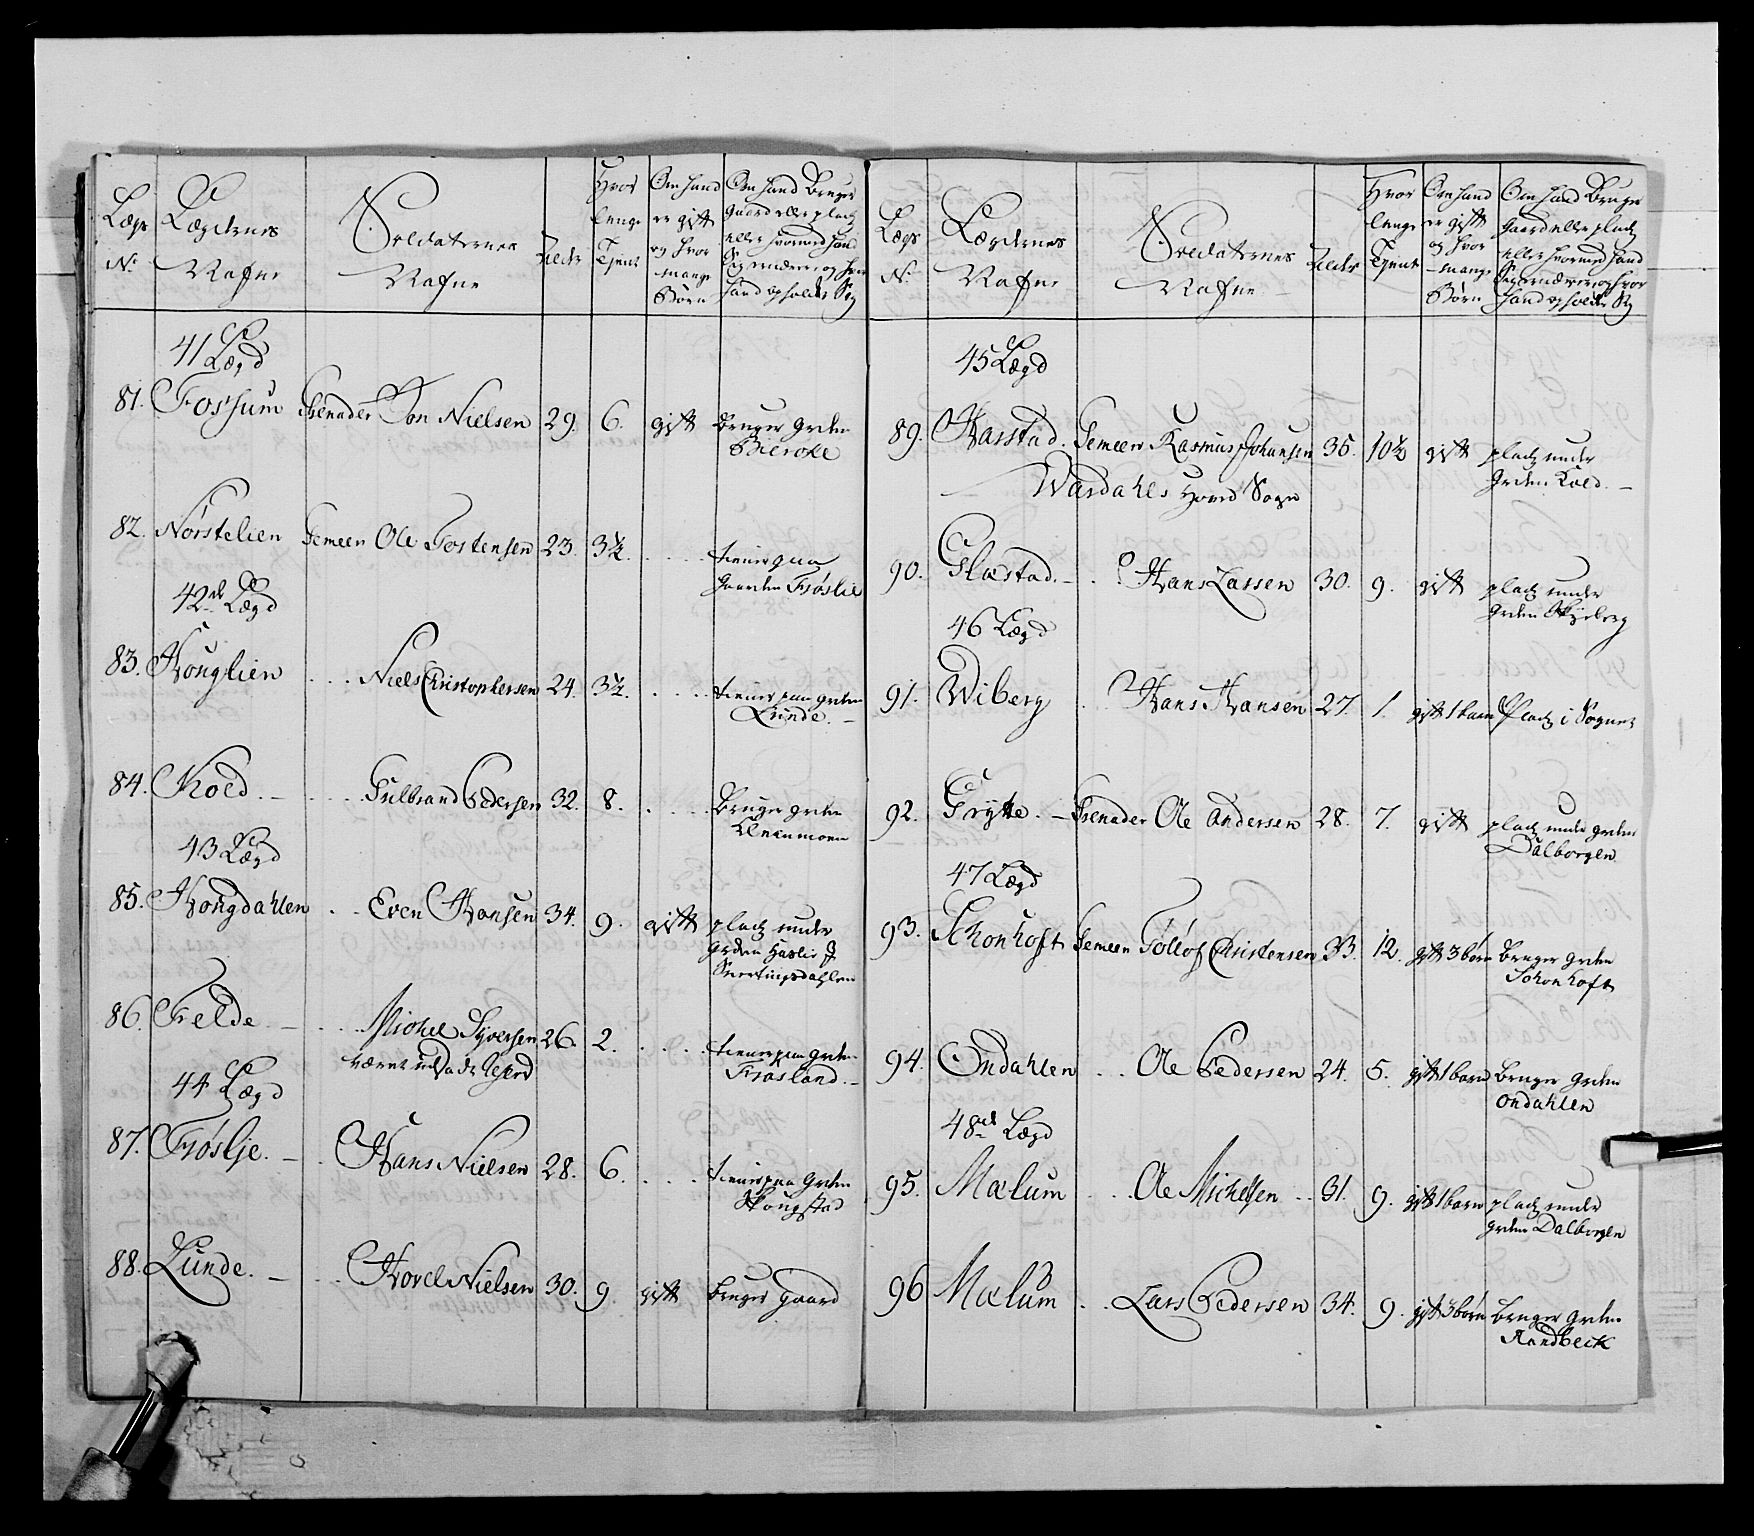 Lægs N:
Lægdernes Nafne
Soldaternes Nafne
Alder
Hvor lenge Tjent
Om hand er gift og hvor mange Børn
Om hand Bruger Gaard eller pladz eller hvormed hand Sig ernærer og hvor hand opholder Sig
41 Lægd
81. Fossum Grenader Jon Nielsen 29. 6. gift Bruger Grden
Bieroke
82. Nørstelien Gemeen Ole Tostensen 23. 3½. . . . . tiener paa
Gaarden Frøslie
42de Lægd
83. Houglien . . . Niels Christophersen 24. 3½ . . . . tiener paa Grden
Lunde. –
84. Koed. – . . . . Gulbrand Pedersen 32. 8. . . . . Bruger Grden
43 Lægd
85. Hougdahlen . . Even Hansen 34. 9. gift pladz under
Grden Haslie J
Snertingsdahlen
86. Felde. – . . . . Michel Syversen 26. 2. . . . . tiener paa Grden
Frøsland. –
44 Lægd
87. Frøslje. – . Hans Nielsen 28. 6. . . . . tiener paa Grden
Skougstad
88. Lunde. – . . . Hovel Nielsen 30. 9 gift bruger Gaard
Lægs N:
Lægdernes Nafne
Soldaternes Nafne
Alder
Hvor lenge Tjent
Om hand er gift og hvor mange Børn
Om hand Bruger Gaard eller pladz eller hvormed hand Sig ernærer og hvor hand opholder Sig
45 Lægd
89. Harstad. Gemeen Rasmus Johansen 35. 10½ gift pladz under
Grden Koed. –
Wardahls Hoved Sogn
90. Glæstad. – . Hans Larsen 30. 9. gift pladz under
Grden Skjeberg
46 Lægd
91. Wiberg . Hans Hansen 27. 1. gift 1 barn Pladz i Sognet
92. Grytte. – Grenader Ole Andersen 28. 7. gift pladz under Grden
Dalborgen
47 Lægd
93. Schonhoft Gemeen Tolløf Christensen 33. 12. gift 3 børn Bruger Grden
Schonhoft
94. Ondahlen . . Ole Pedersen 24. 5. gift 1 barn bruger Grden
Ondahlen
48de Lægd
95. Mælum . . . Ole Michelsen . . 31. 9. gift 1 barn pladz under
Grden Dalborgen
96 Mælum . . Lars Pedersen 34. 9. gift 3 børn bruger Grden
Randbeck